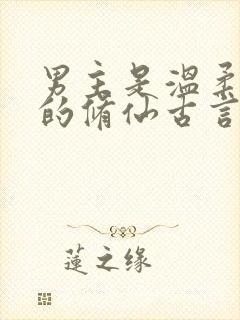 男主是温柔
的脩仙古言
蓮之缘